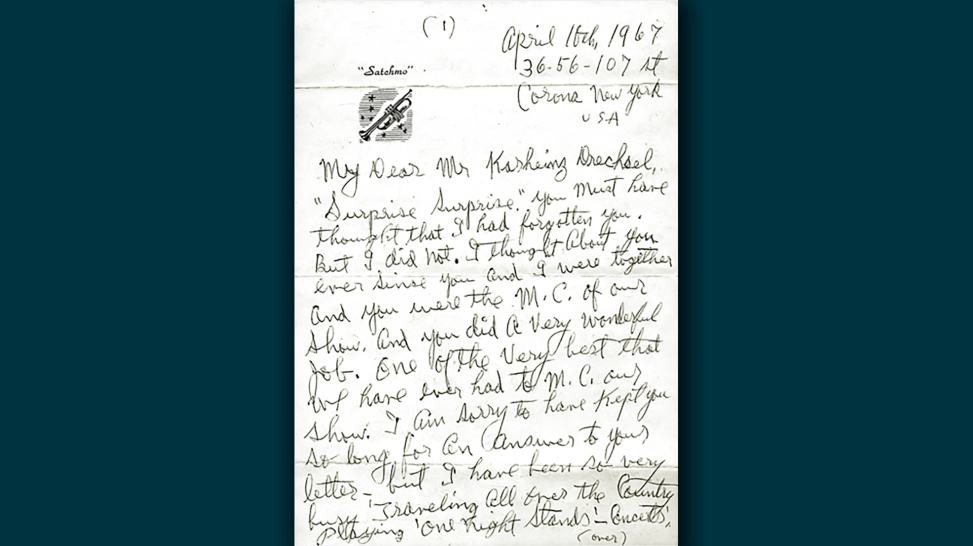 (1)
April 16th, 1967
36-56-107 st
Corona New York
USA
"Satchmo"
My Dear Mr Karheinz Drechsel,
"Surprise Surprise." you must have
thought that I had forgotten you.
But I did Not. I thought About you
ever since you and I were together
And you were the M.C. of our
Show. And you did A Very wonderful
Job. One of the Very best that
we have ever had to M.C. our
show. I Am sorry to have Kept you
so long for An Answer to your
letter - but I have been so very
busy - Traveling All over the Country
Playing 'One Night Stands' - Concerts,
(over)